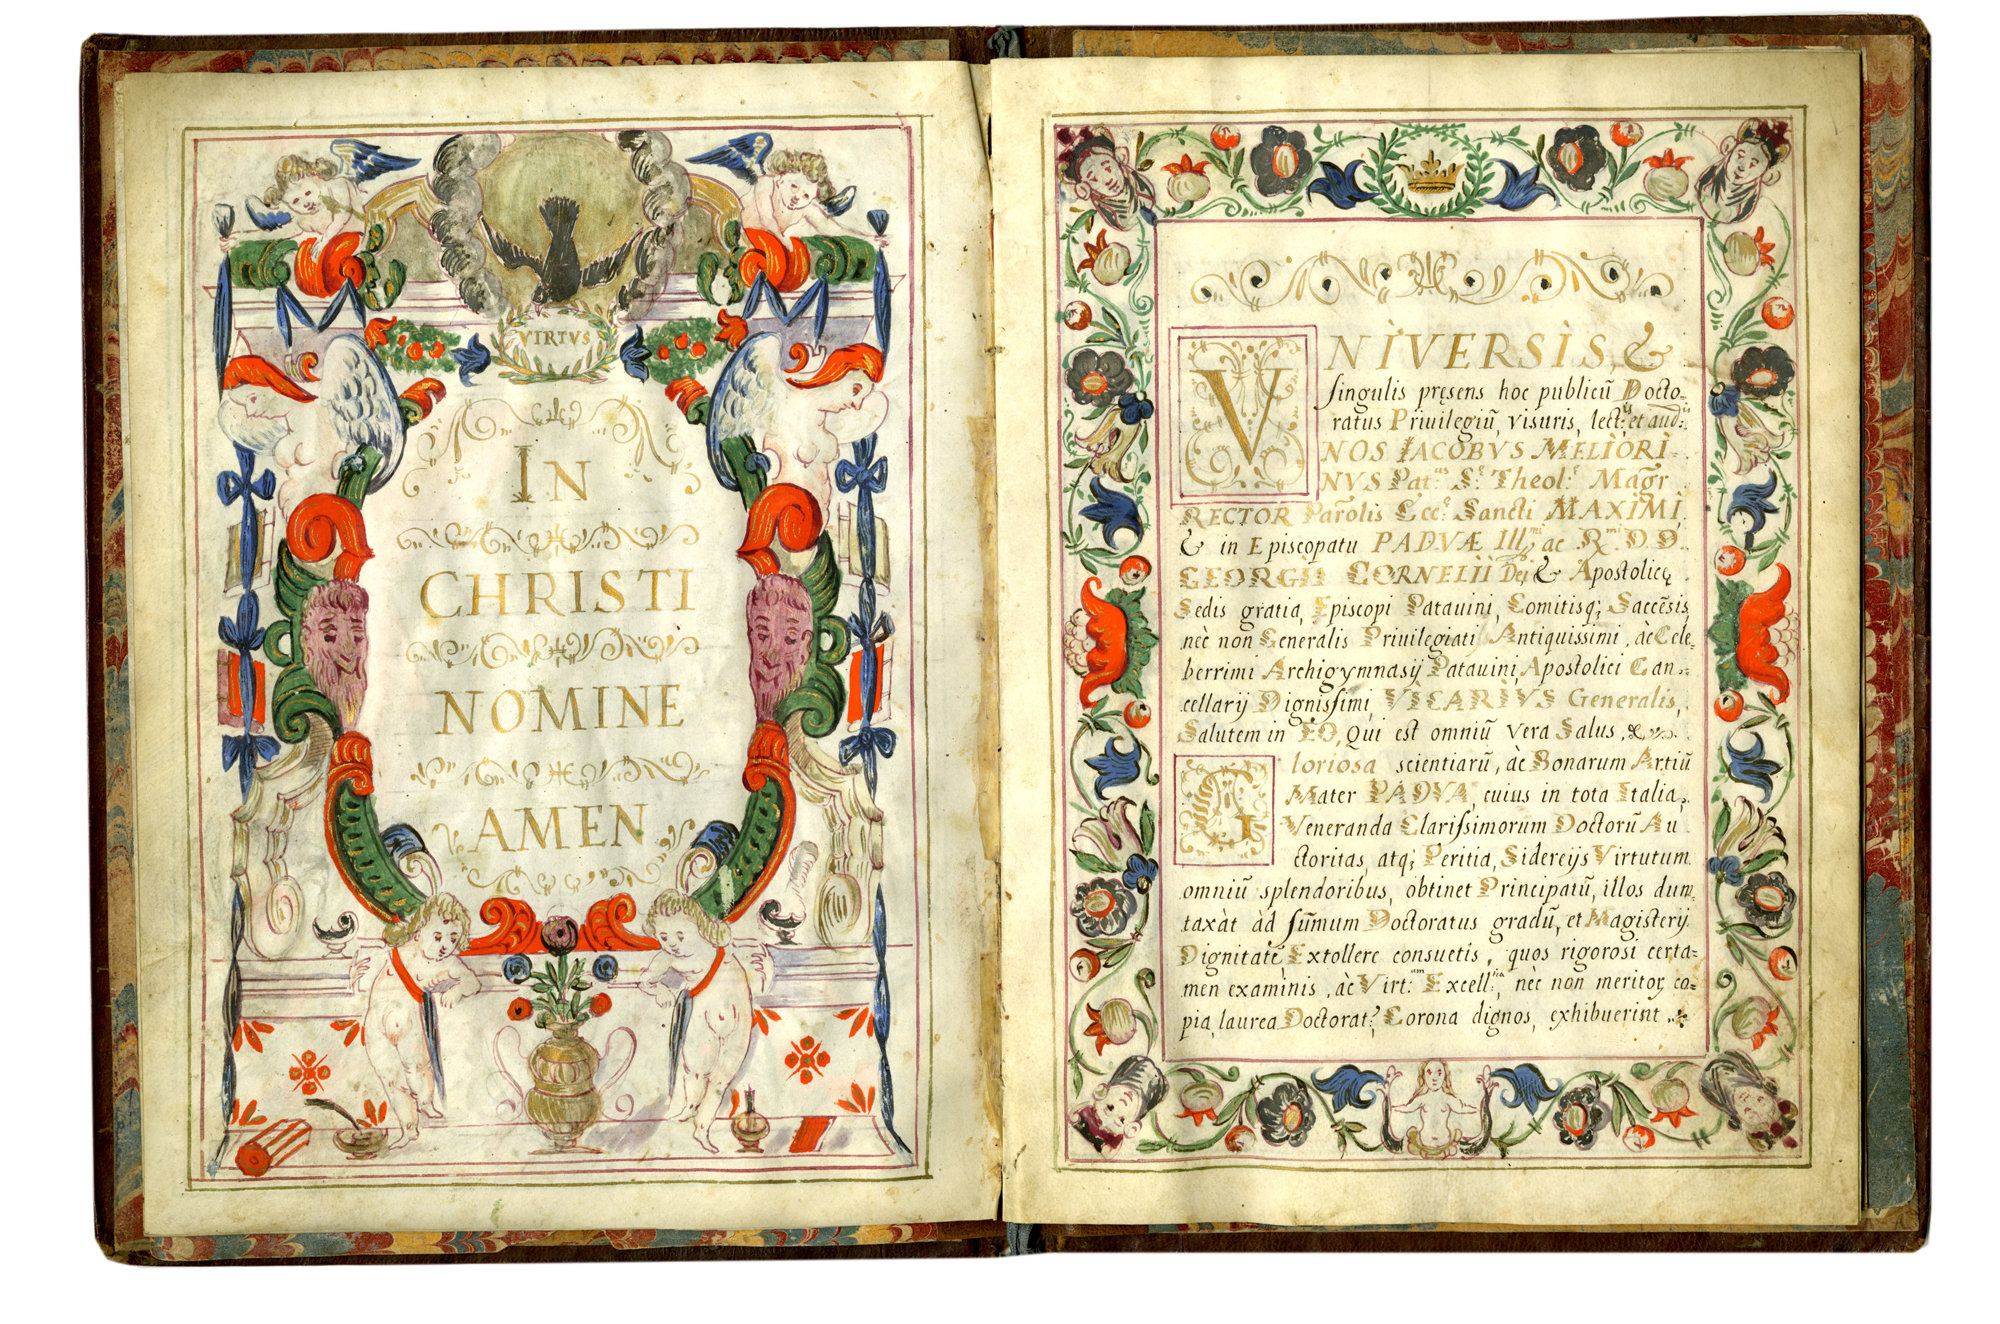 VIRTVS
IN
CHRISTI
NOMINE
AMEN
VNÌVERSÌS, &
singulis pręsens hoc publicū Docto-
ratus Priuilegiū, visuris, lect: et aud:
NOS IACOBVS MELÌORÌ-
NVS Pat: S: Theol: Magr
RECTOR Parōlis Ecc: Sancti MAXIMI,
& in Episcopatu PADVÆ Ill. ac R. D D
GEORGII CORNELII Dei & Apostolicę
Sedis gratia, Episcopi Patauini, Comitisq; Saccēsis
nec non Generalis Priuilegiati Antiquissimi, ac Cele
berrimi Archigymnasij Patauini, Apostolici Can-
cellarij Dignissimi, VÌCARÌVS Generalis,
Salutem in EO, Qui est omniū vera Salus,
Gloriosa scientiarū, ac Bonarum Artiū
Mater PADVA, cuius in tota Italia,
Veneranda Clarissimorum Doctorū Au
ctoritas, atq; Peritia, Sidereijs Virtutum
omniū splendoribus, obtinet Principatū, illos dum
taxàt àd sūmum Doctoratus gradū, et Magisterij
Dignitatē Extollere consuetis, quos rigorosi certa-
men examinis, àc Virt: Excell:, nèc non meritor, co-
pia, laurea Doctorat:, Corona dignos, exhibuerint